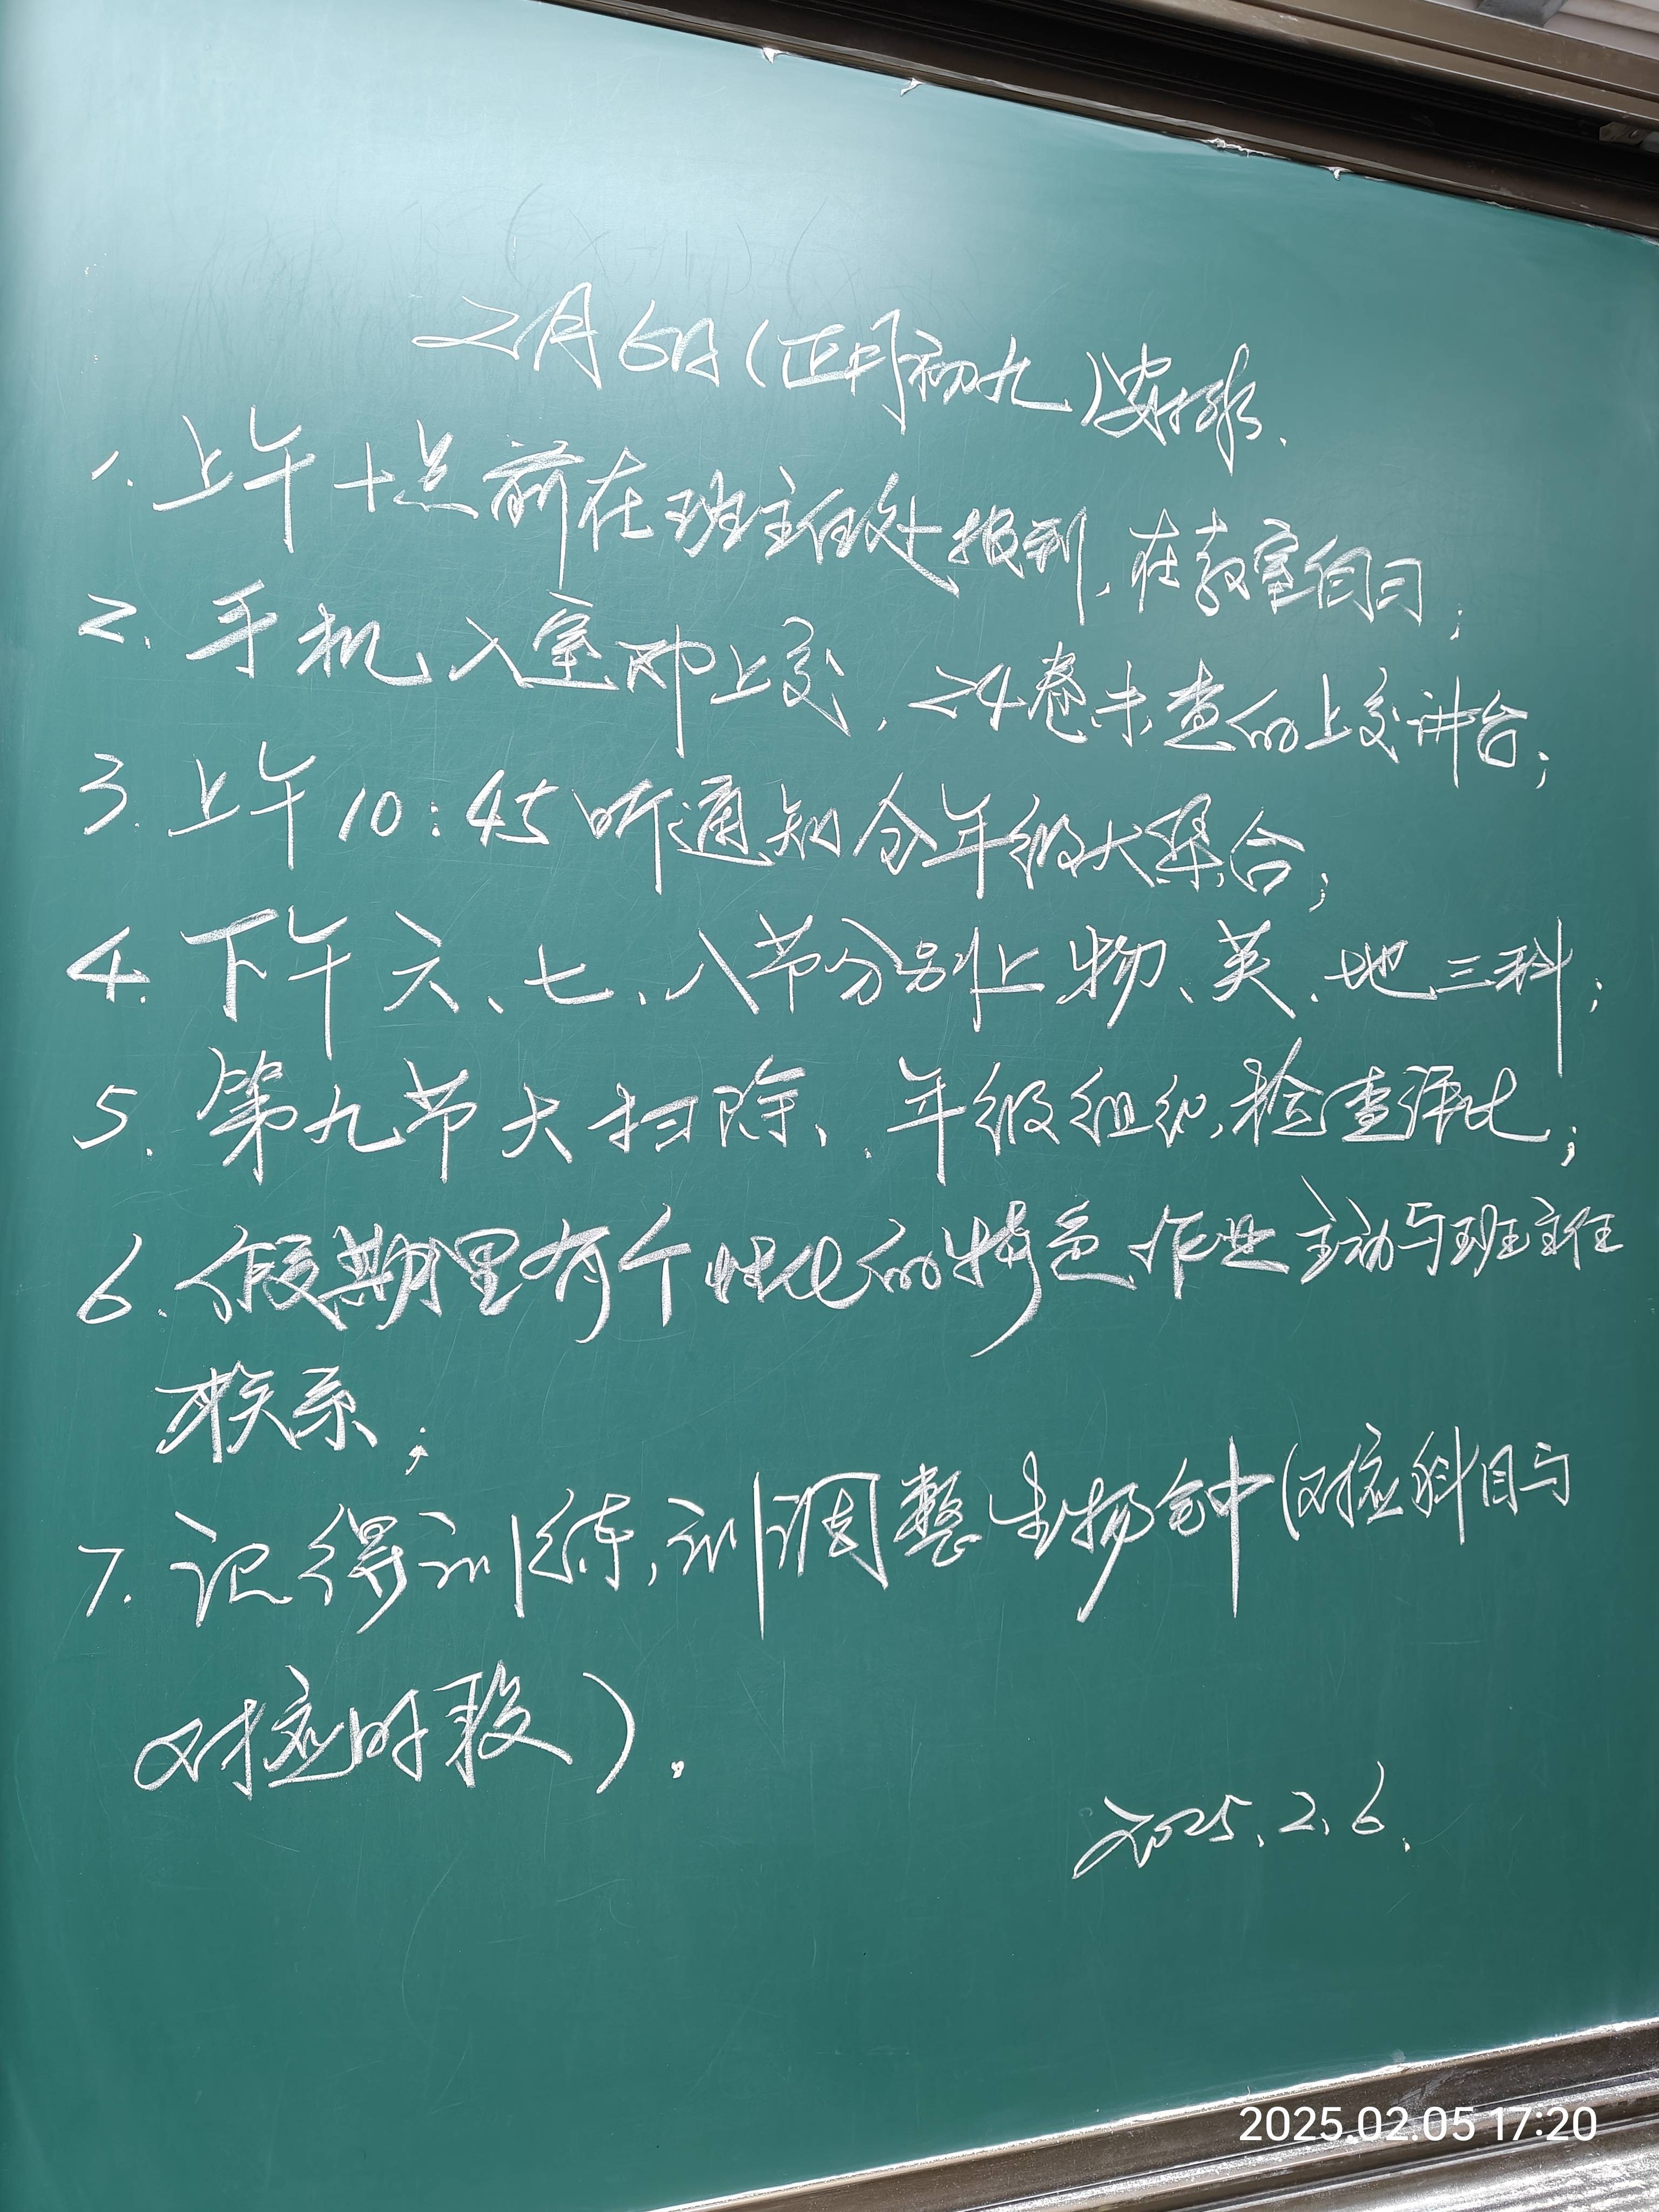 2月6日(正月初九)安排.
1.上午十点前在班主任处报到,在教室自习;
2.手机入室即上交,24卷未查的上交讲台;
3.上午10:45听通知分年级大集合;
4.下午六、七、八节分别上物、英、地三科;
5.第九节大扫除、年级组织检查评比;
6.假期里有个性化的特色作业主动与班主任
联系;
7.记得训练,训调整生物钟(对应科目与
对应时段).
2025.2.6.
2025.02.05 17:20